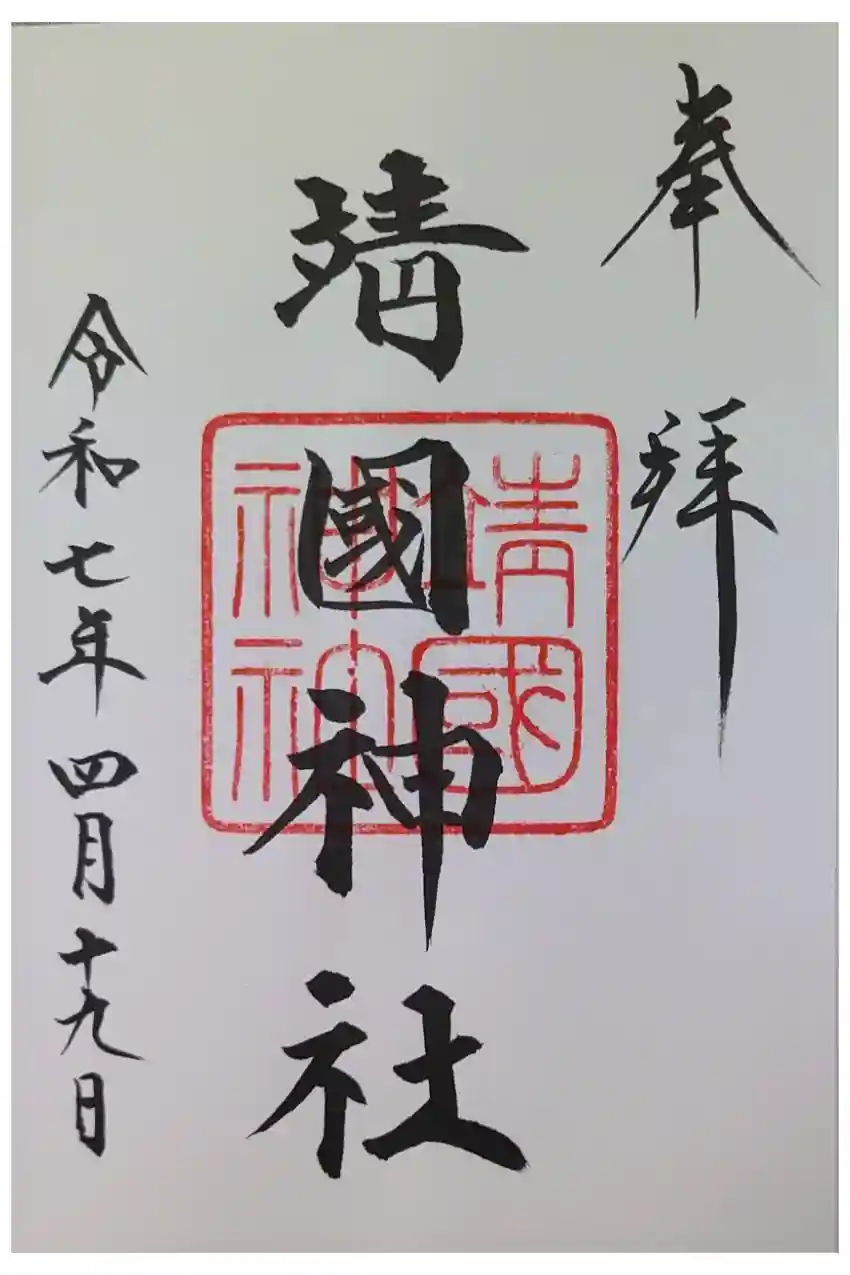 奉拜
靖國神社
靖國神社
令和七年四月十九日